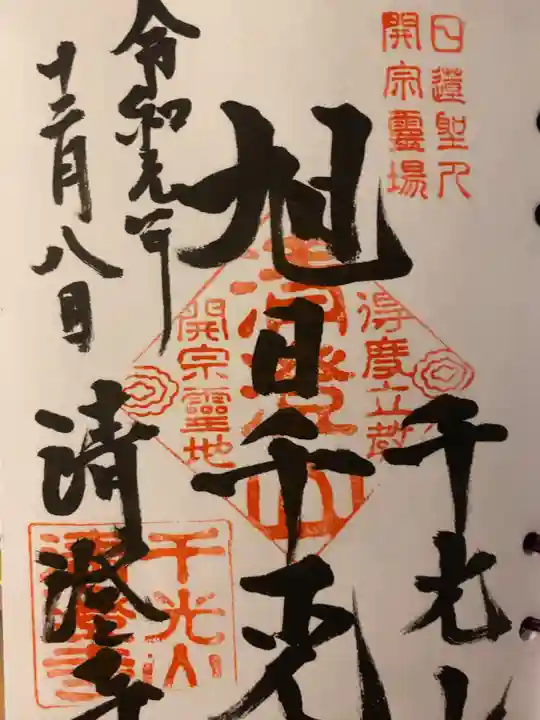 日蓮聖人
開宗靈場
千光山
旭日千光
令和元年
十二月八日
清澄寺
得度立教
清澄山
開宗靈地
千光山
清澄寺